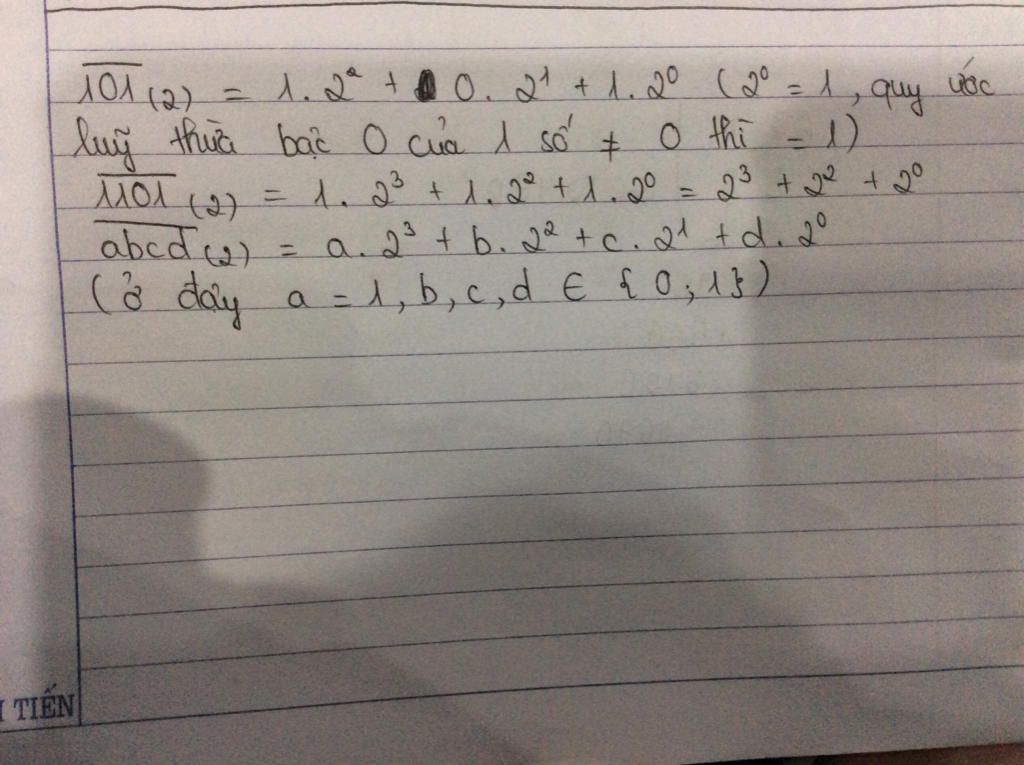 101(2) = 1.2² + 0.2¹ + 1.2⁰ (2⁰ = 1, quy ước
luỹ thừa bậc 0 của 1 số ≠ 0 thì = 1)
1101(2) = 1.2³ + 1.2² + 1.2⁰ = 2³ + 2² + 2⁰
abcd(2) = a.2³ + b.2² + c.2¹ + d.2⁰
(ở đây a = 1, b, c, d ∈ {0; 1})
TIẾN